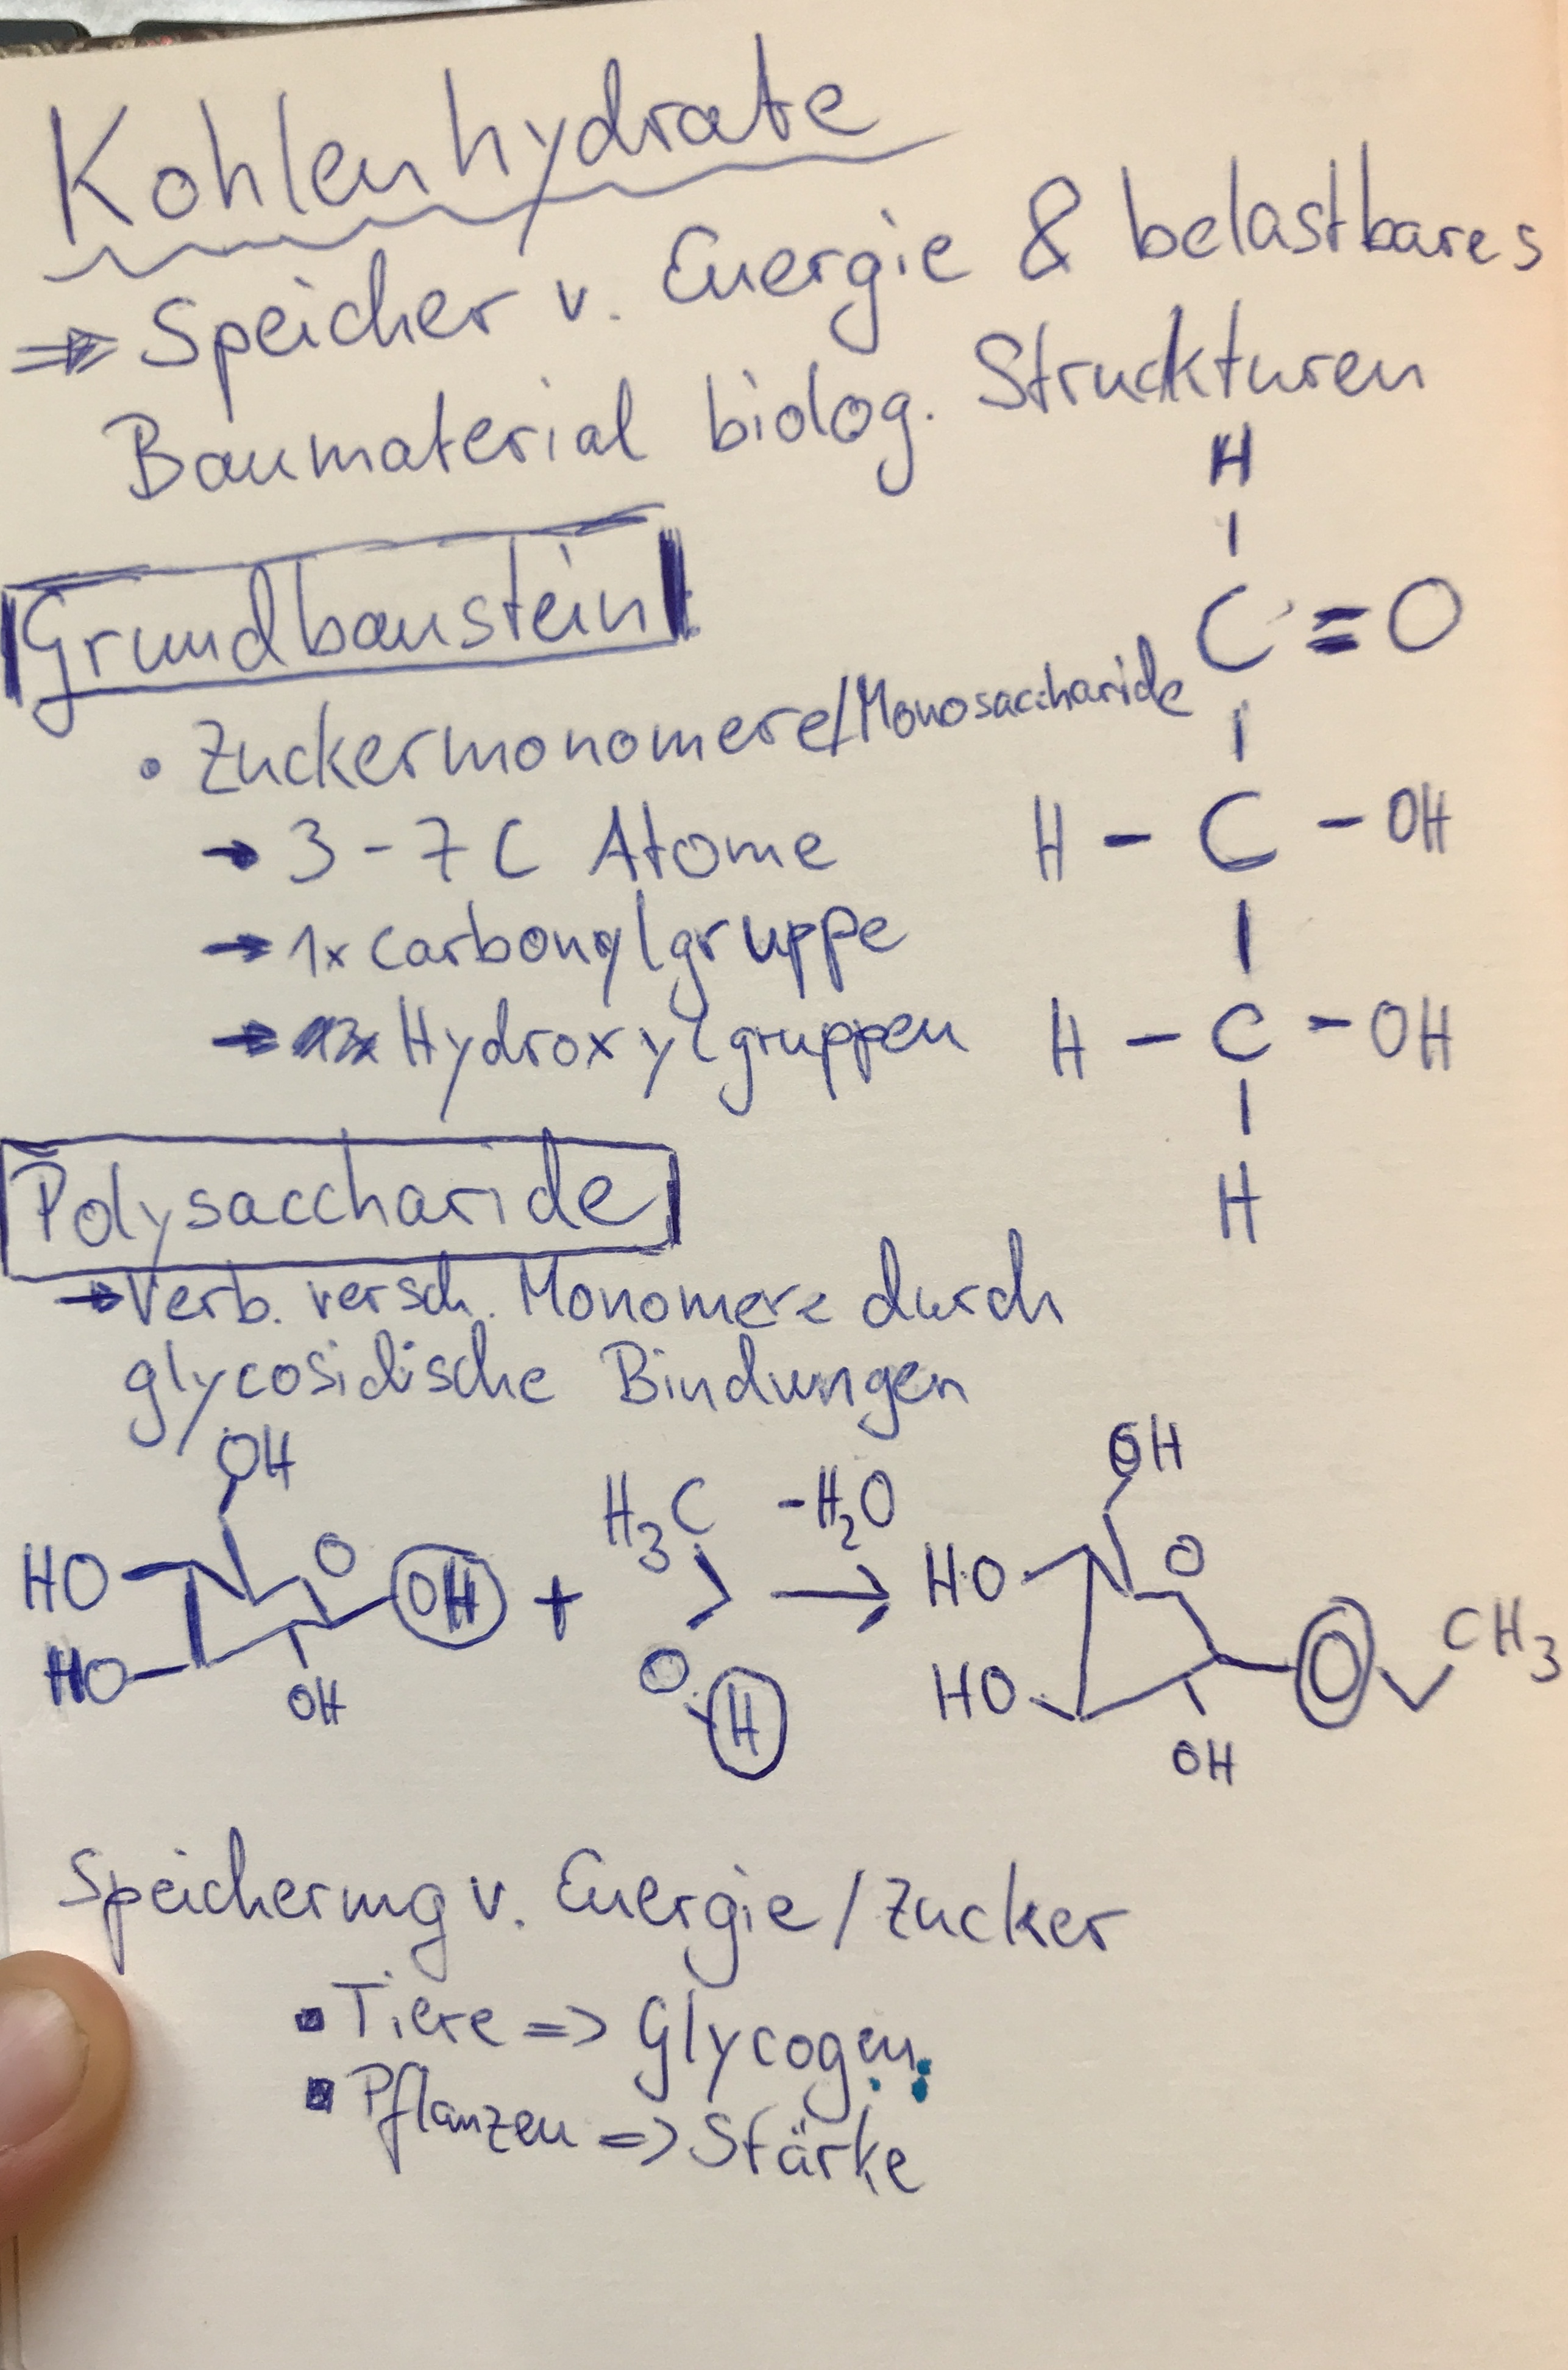 Kohlenhydrate
⇒ Speicher v. Energie & belastbares
Baumaterial biolog. Struckturen
Grundbaustein
• Zuckermonomere/Monosaccharide
→ 3 - 7 C Atome
→ 1x Carbonylgruppe
→ Hydroxylgruppen
H
C = O
H - C - OH
H - C - OH
H
Polysaccharide
→ Verb. versch. Monomere durch
glycosidische Bindungen
OH
HO O OH
HO OH
+
H₃C
O H
-H₂O
→
OH
HO O
HO OH
O CH₃
Speicherung v. Energie/Zucker
▪ Tiere => Glycogen
▪ Pflanzen => Stärke